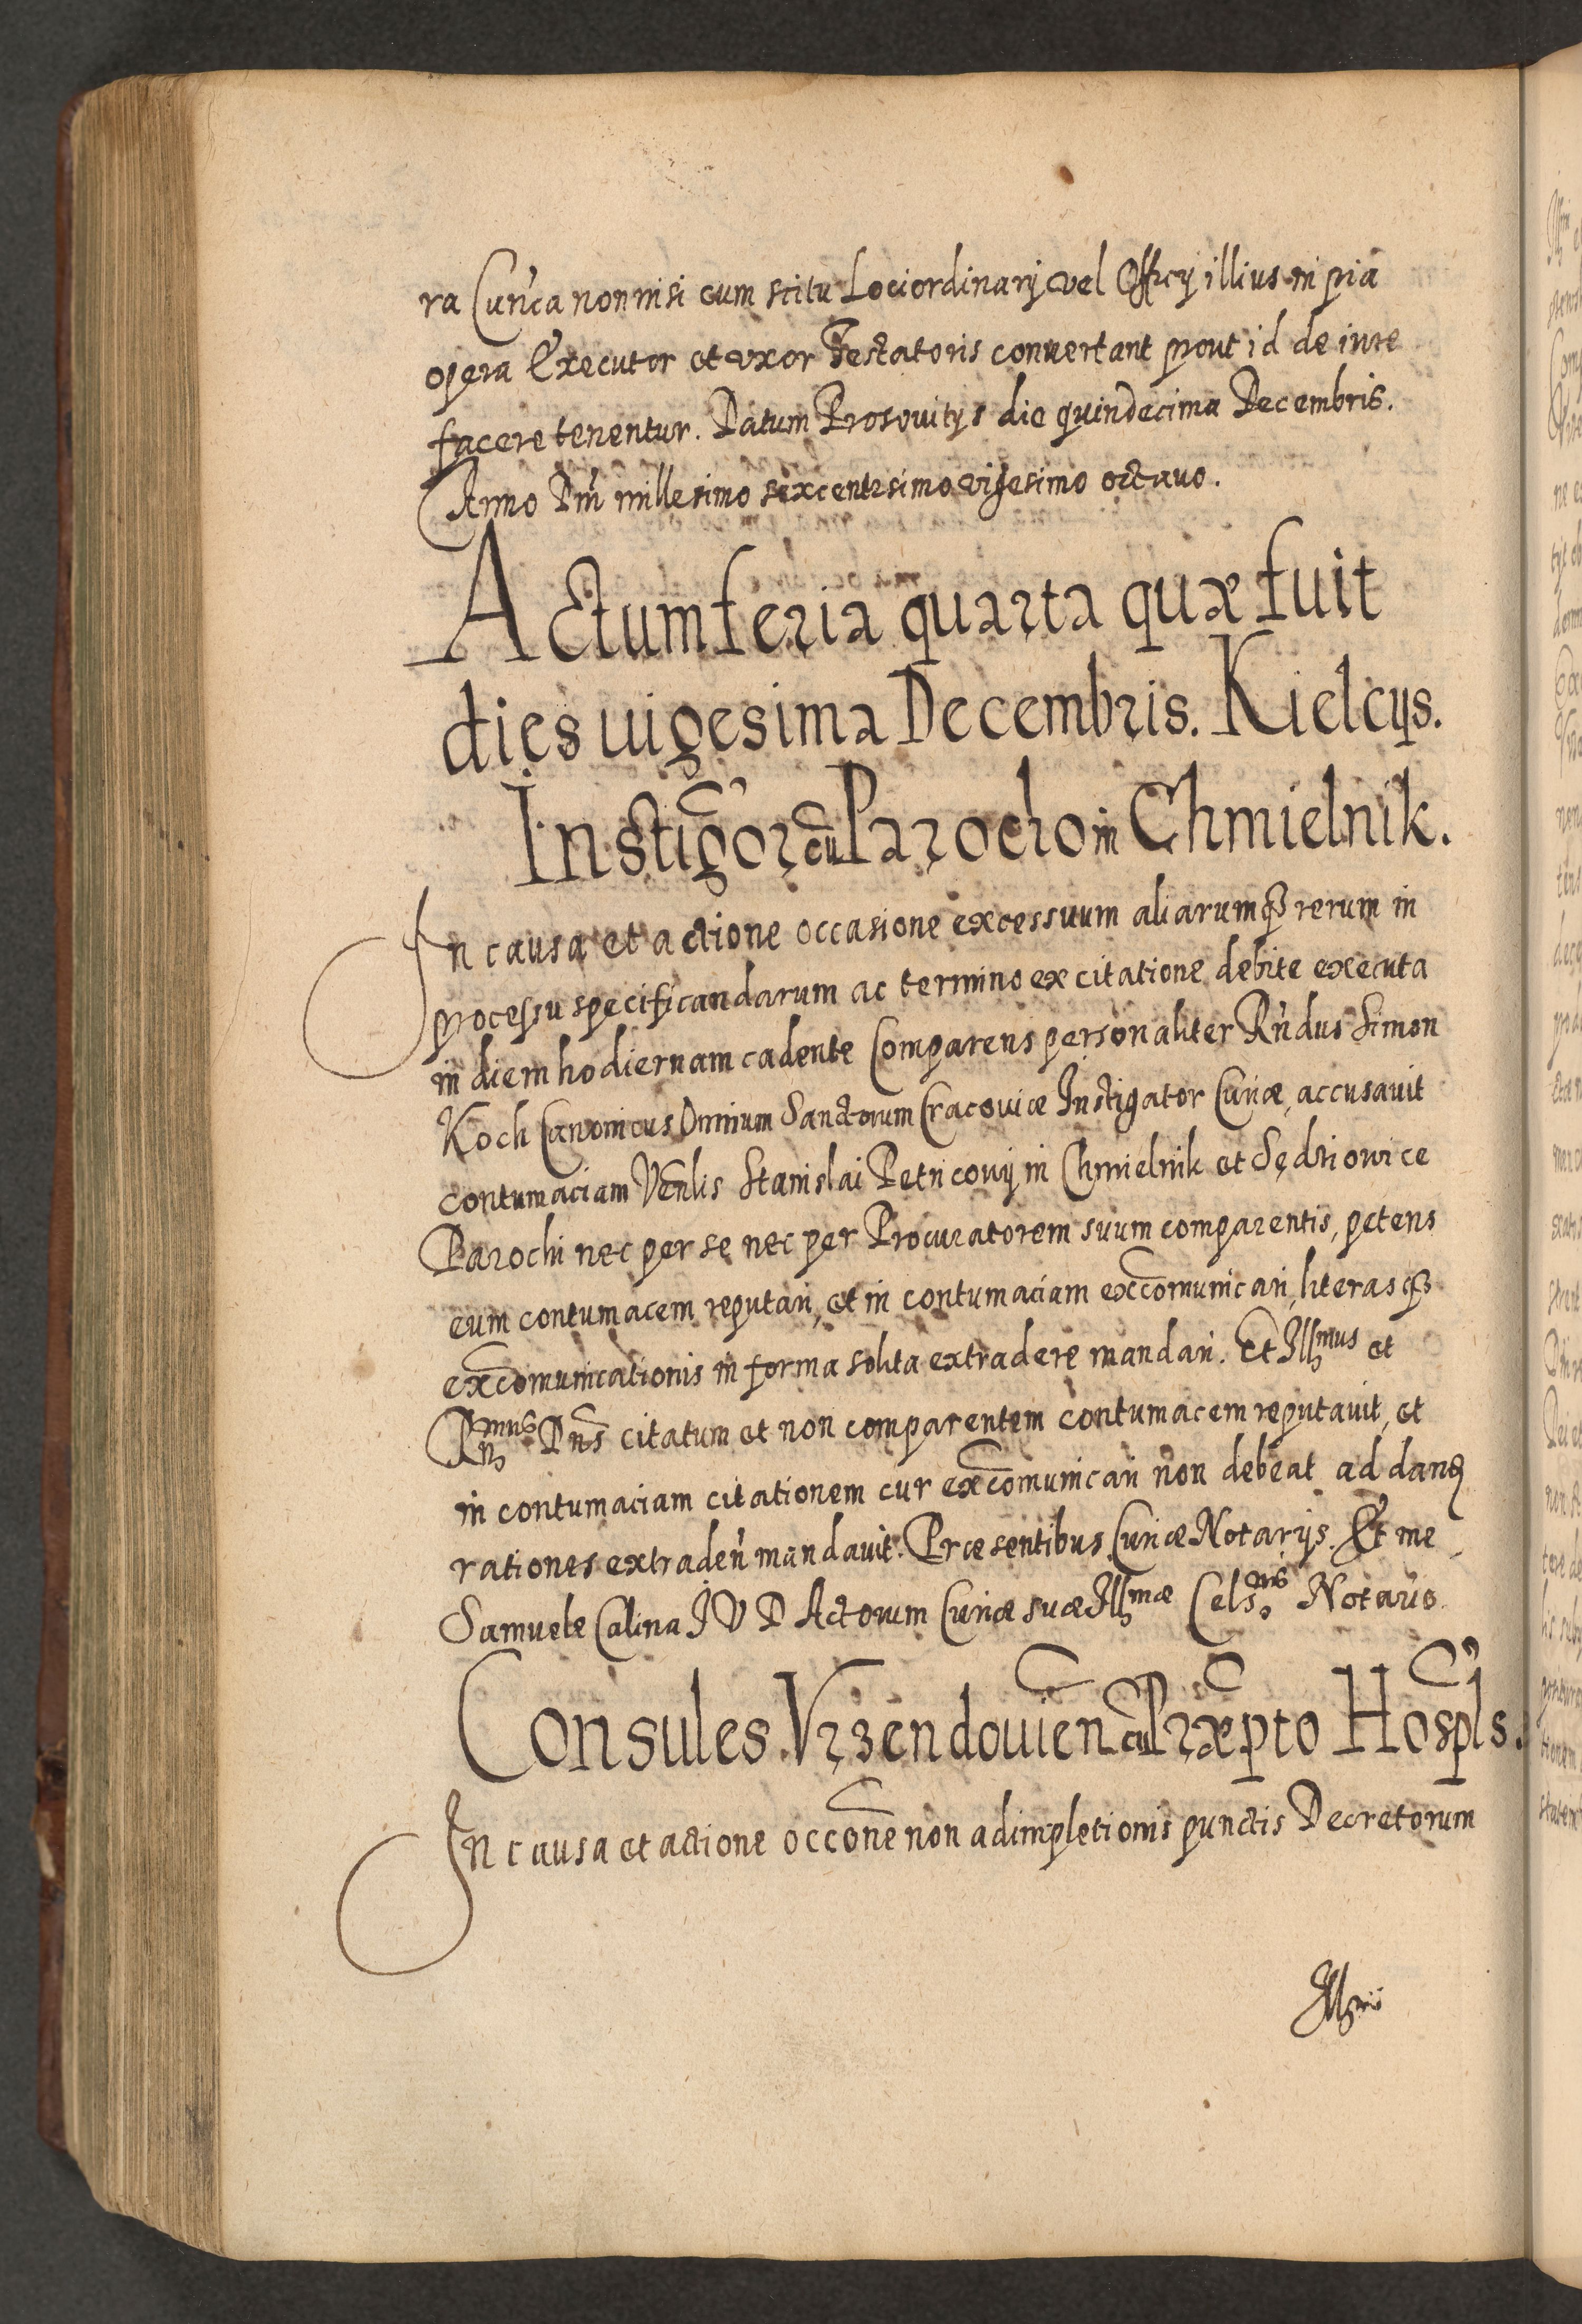 ra Cun̄ca non nisi cum scitu Lociordinarij vel Officij illius in pia
opera Executor et vxor Testatoris conuertant prout id de iure
facere tenentur. Datum Prosovitijs die quindecima Decembris.
Anno Dn̄i millesimo sexcentesimo vigesimo octauo.
Actum feria quarta quæ fuit
dies uigesima Decembris. Kielcijs.
Instig̃or cū Parocho in Chmielnik.
In causa et actione occasione excessuum aliarumqȝ rerum in
processu specificandarum ac termino ex citatione debite executa
in diem hodiernam cadente Comparens personaliter Rn̄dus Simon
Koch Canonicus Omnium Sanctorum Cracouiæ Instigator Curiæ, accusauit
contumaciam Ven̄lis Stanislai Petricouij in Chmielnik et Sędziowice
Parochi nec per se nec per Procuratorem suum comparentis, petens
eum contumacem reputari, et in contumaciam excōmunicari, literasqȝ
excōmunicationis in forma solita extradere mandari. Et Illmus et
Rn̄mus Dn̄s citatum et non comparentem contumacem reputauit, et
in contumaciam citationem cur excōmunicari non debeat ad dandȝ
rationes extraden̄ mandauit. Præsentibus Curiæ Notarijs. Et me
Samuele Calina I V D Actorum Curiæ suæ Illmæ Cels.nis Notario.
Consules Vrzendouien̄ cū Præp̄to Hosp̄ls.
In causa et actione occōne non adimpletionis punctis Decretorum
Illmi